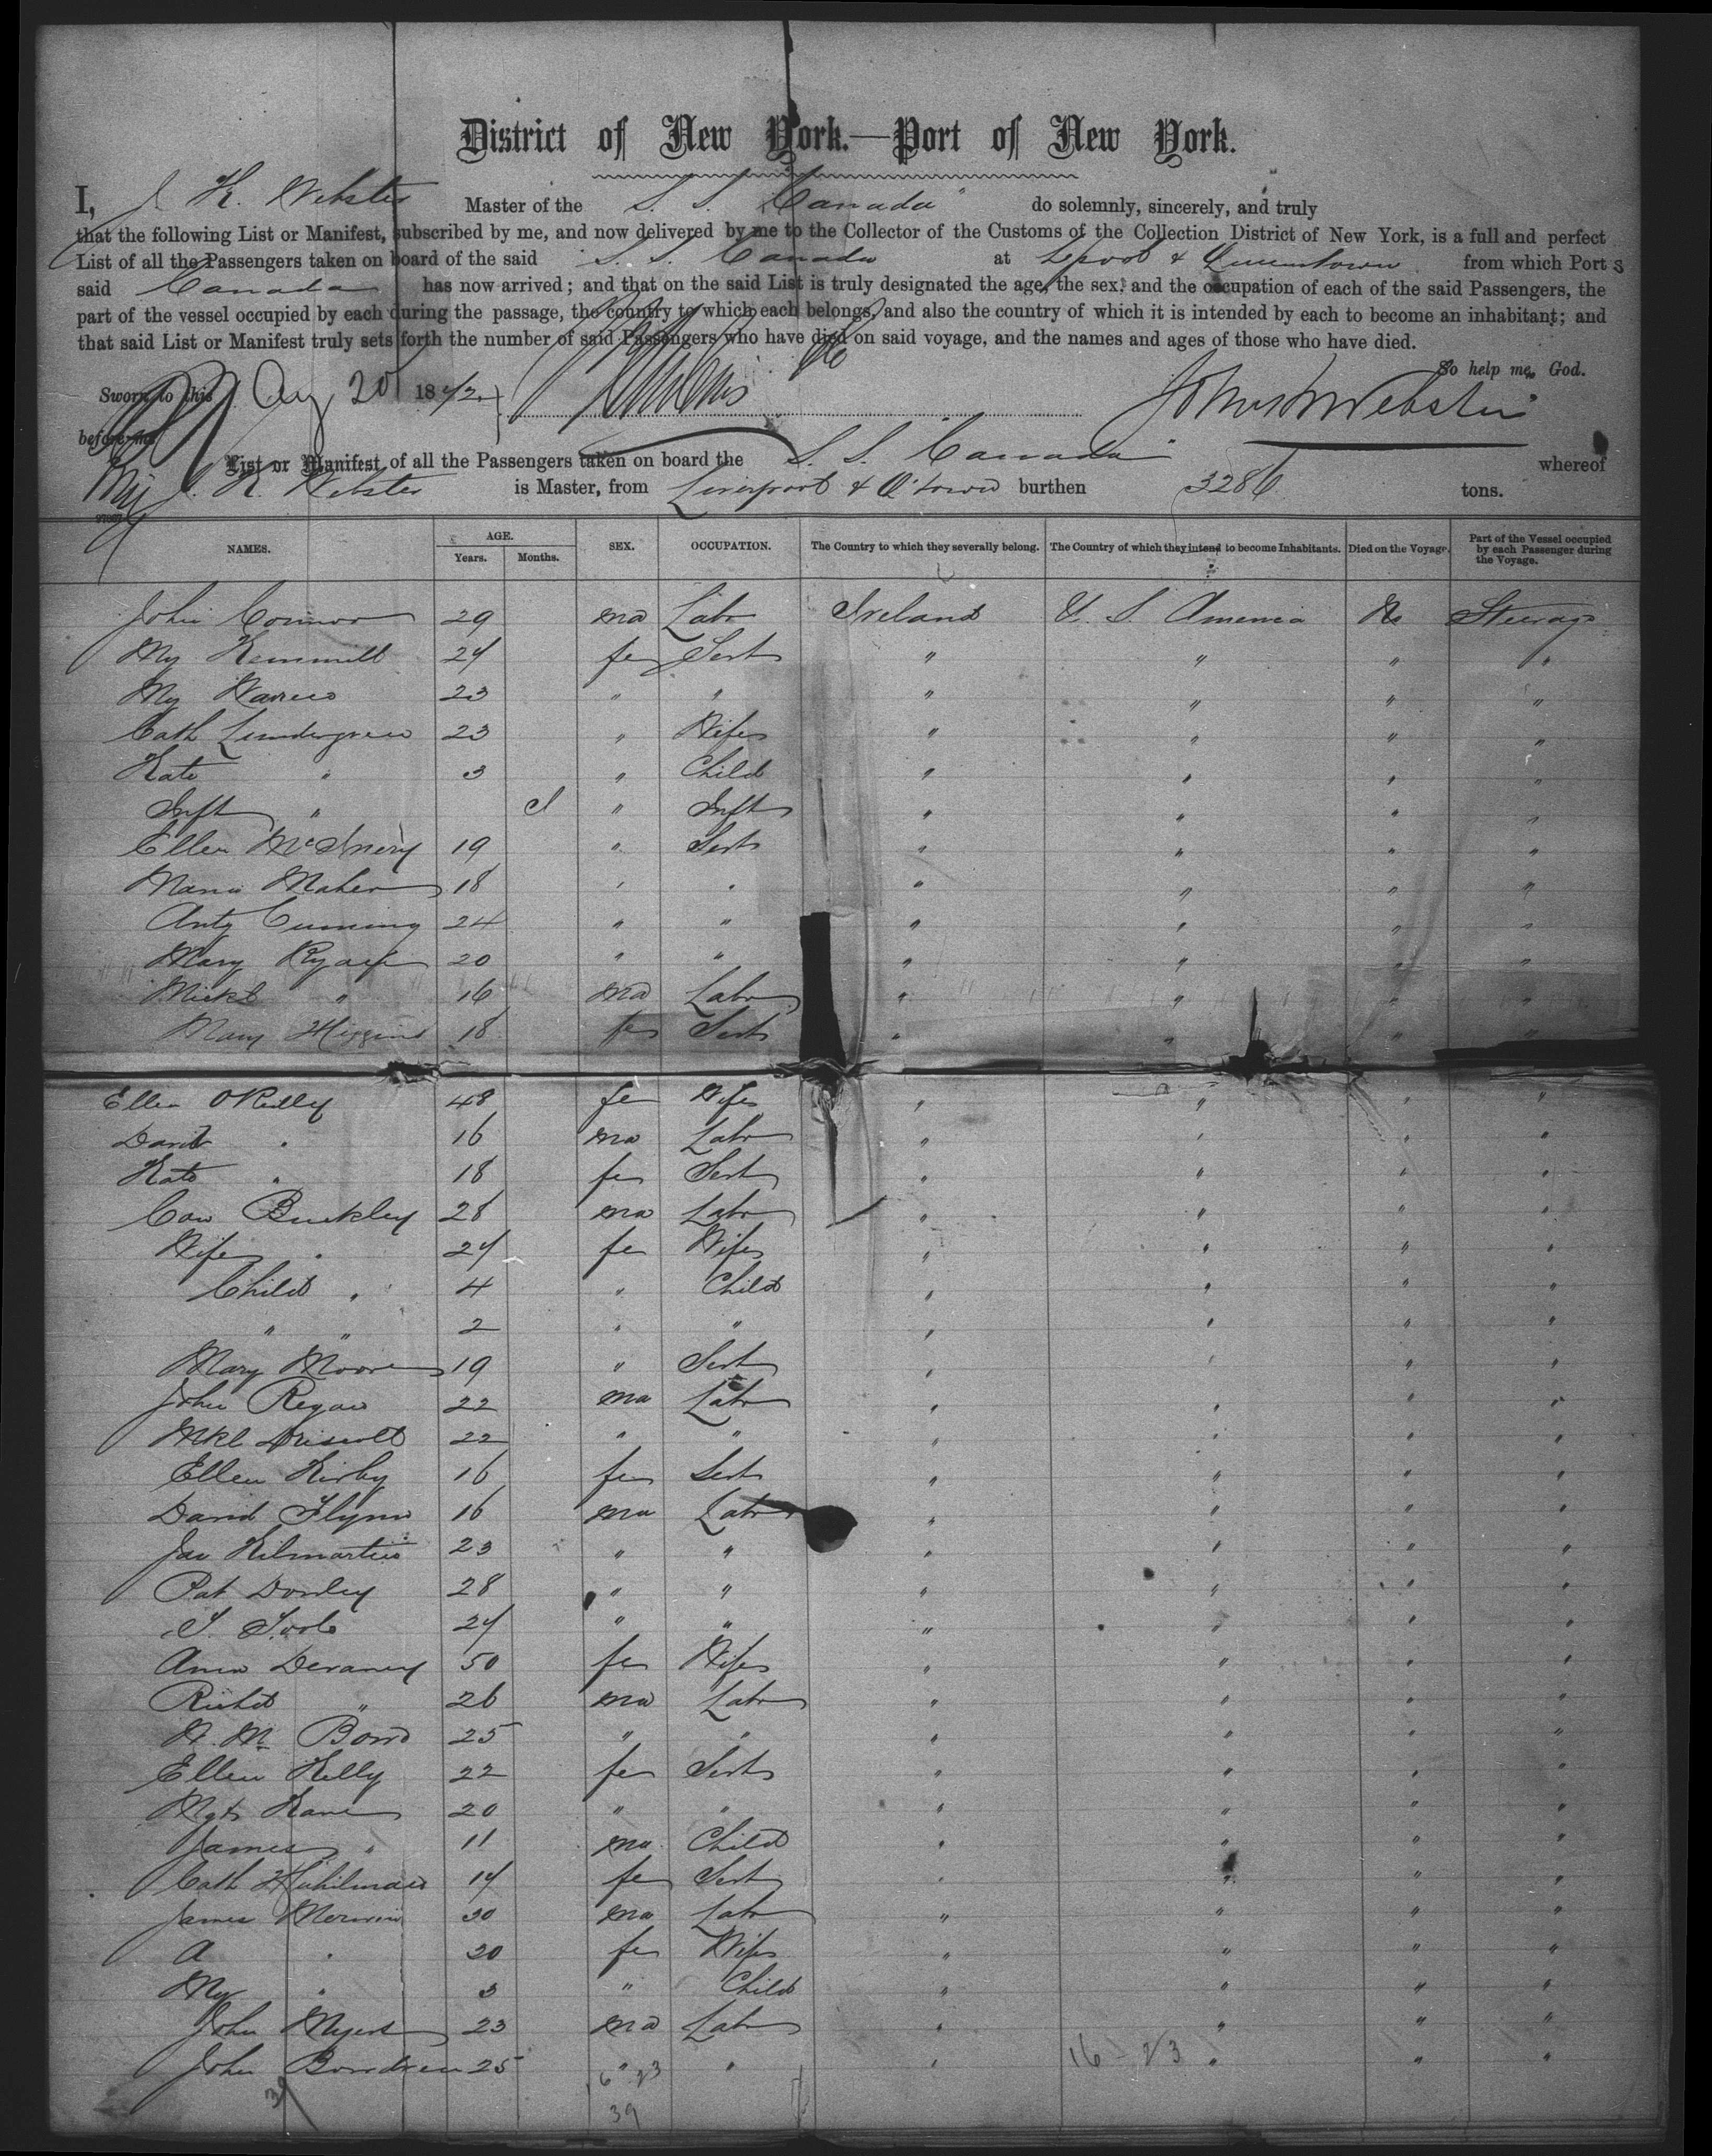 District of New York.—Port of New York.
I, J. K. Webster Master of the S. S. "Canada" do solemnly, sincerely, and truly
that the following List or Manifest, subscribed by me, and now delivered by me to the Collector of the Customs of the Collection District of New York, is a full and perfect
List of all the Passengers taken on board of the said S. S. Canada at Lpool & Queenstown from which Port s
said Canada has now arrived; and that on the said List is truly designated the age, the sex, and the occupation of each of the said Passengers, the
part of the vessel occupied by each during the passage, the country to which each belongs, and also the country of which it is intended by each to become an inhabitant; and
that said List or Manifest truly sets forth the number of said Passengers who have died on said voyage, and the names and ages of those who have died.
So help me God.
Sworn to this Aug 20 18
before me
List or Manifest of all the Passengers taken on board the S. S. "Canada" whereof
J. K. Webster is Master, from Liverpool & Q'town burthen 3286 tons.
NAMES. AGE. Years. Months. SEX. OCCUPATION. The Country to which they severally belong. The Country of which they intend to become Inhabitants. Died on the Voyage. Part of the Vessel occupied by each Passenger during the Voyage.
John Connor 29 ma Labr Ireland U. S. America No Steerage
My 24 fe Sert " " " "
My 23 " " " " " "
Cath 23 " Wife " " " "
Kate " 3 " Child " " " "
Inft " " Inft " " " "
Ellen McInery 19 " Sert " " " "
Maria Maher 18 " " " " " "
Anty Cumming 24 " " " " " "
Mary Ryan 20 " " " " " "
Mickl " 16 ma Labr " " " "
Mary Higgins 18 fe Sert " " " "
Ellen O'Reilly 48 fe Wife " " " "
David " 16 ma Labr " " " "
Kate " 18 fe Sert " " " "
Con Buckley 28 ma Labr " " " "
Wife " 24 fe Wife " " " "
Child " 4 " Child " " " "
" " 2 " " " " " "
Mary Moore 19 " Sert " " " "
John Regan 22 ma Labr " " " "
Mkl Driscoll 22 " " " " " "
Ellen Kirby 16 fe Sert " " " "
David Flynn 16 ma Labr " " " "
Jas Kilmartin 23 " " " " " "
Pat Donley 28 " " " " " "
T. Toole 24 " " " " " "
Ann Devaney 50 fe Wife " " " "
Richd " 26 ma Labr " " " "
25 " " " " " "
Ellen Kelly 22 fe Sert " " " "
Mgt Kane 20 " " " " " "
James " 11 ma Child " " " "
Cath 14 fe Sert " " " "
James 30 ma Labr " " " "
A " 30 fe Wife " " " "
My " 3 " Child " " " "
John Myers 23 ma Labr " " " "
John Bowdren 25 " " " " " "
16-23
39